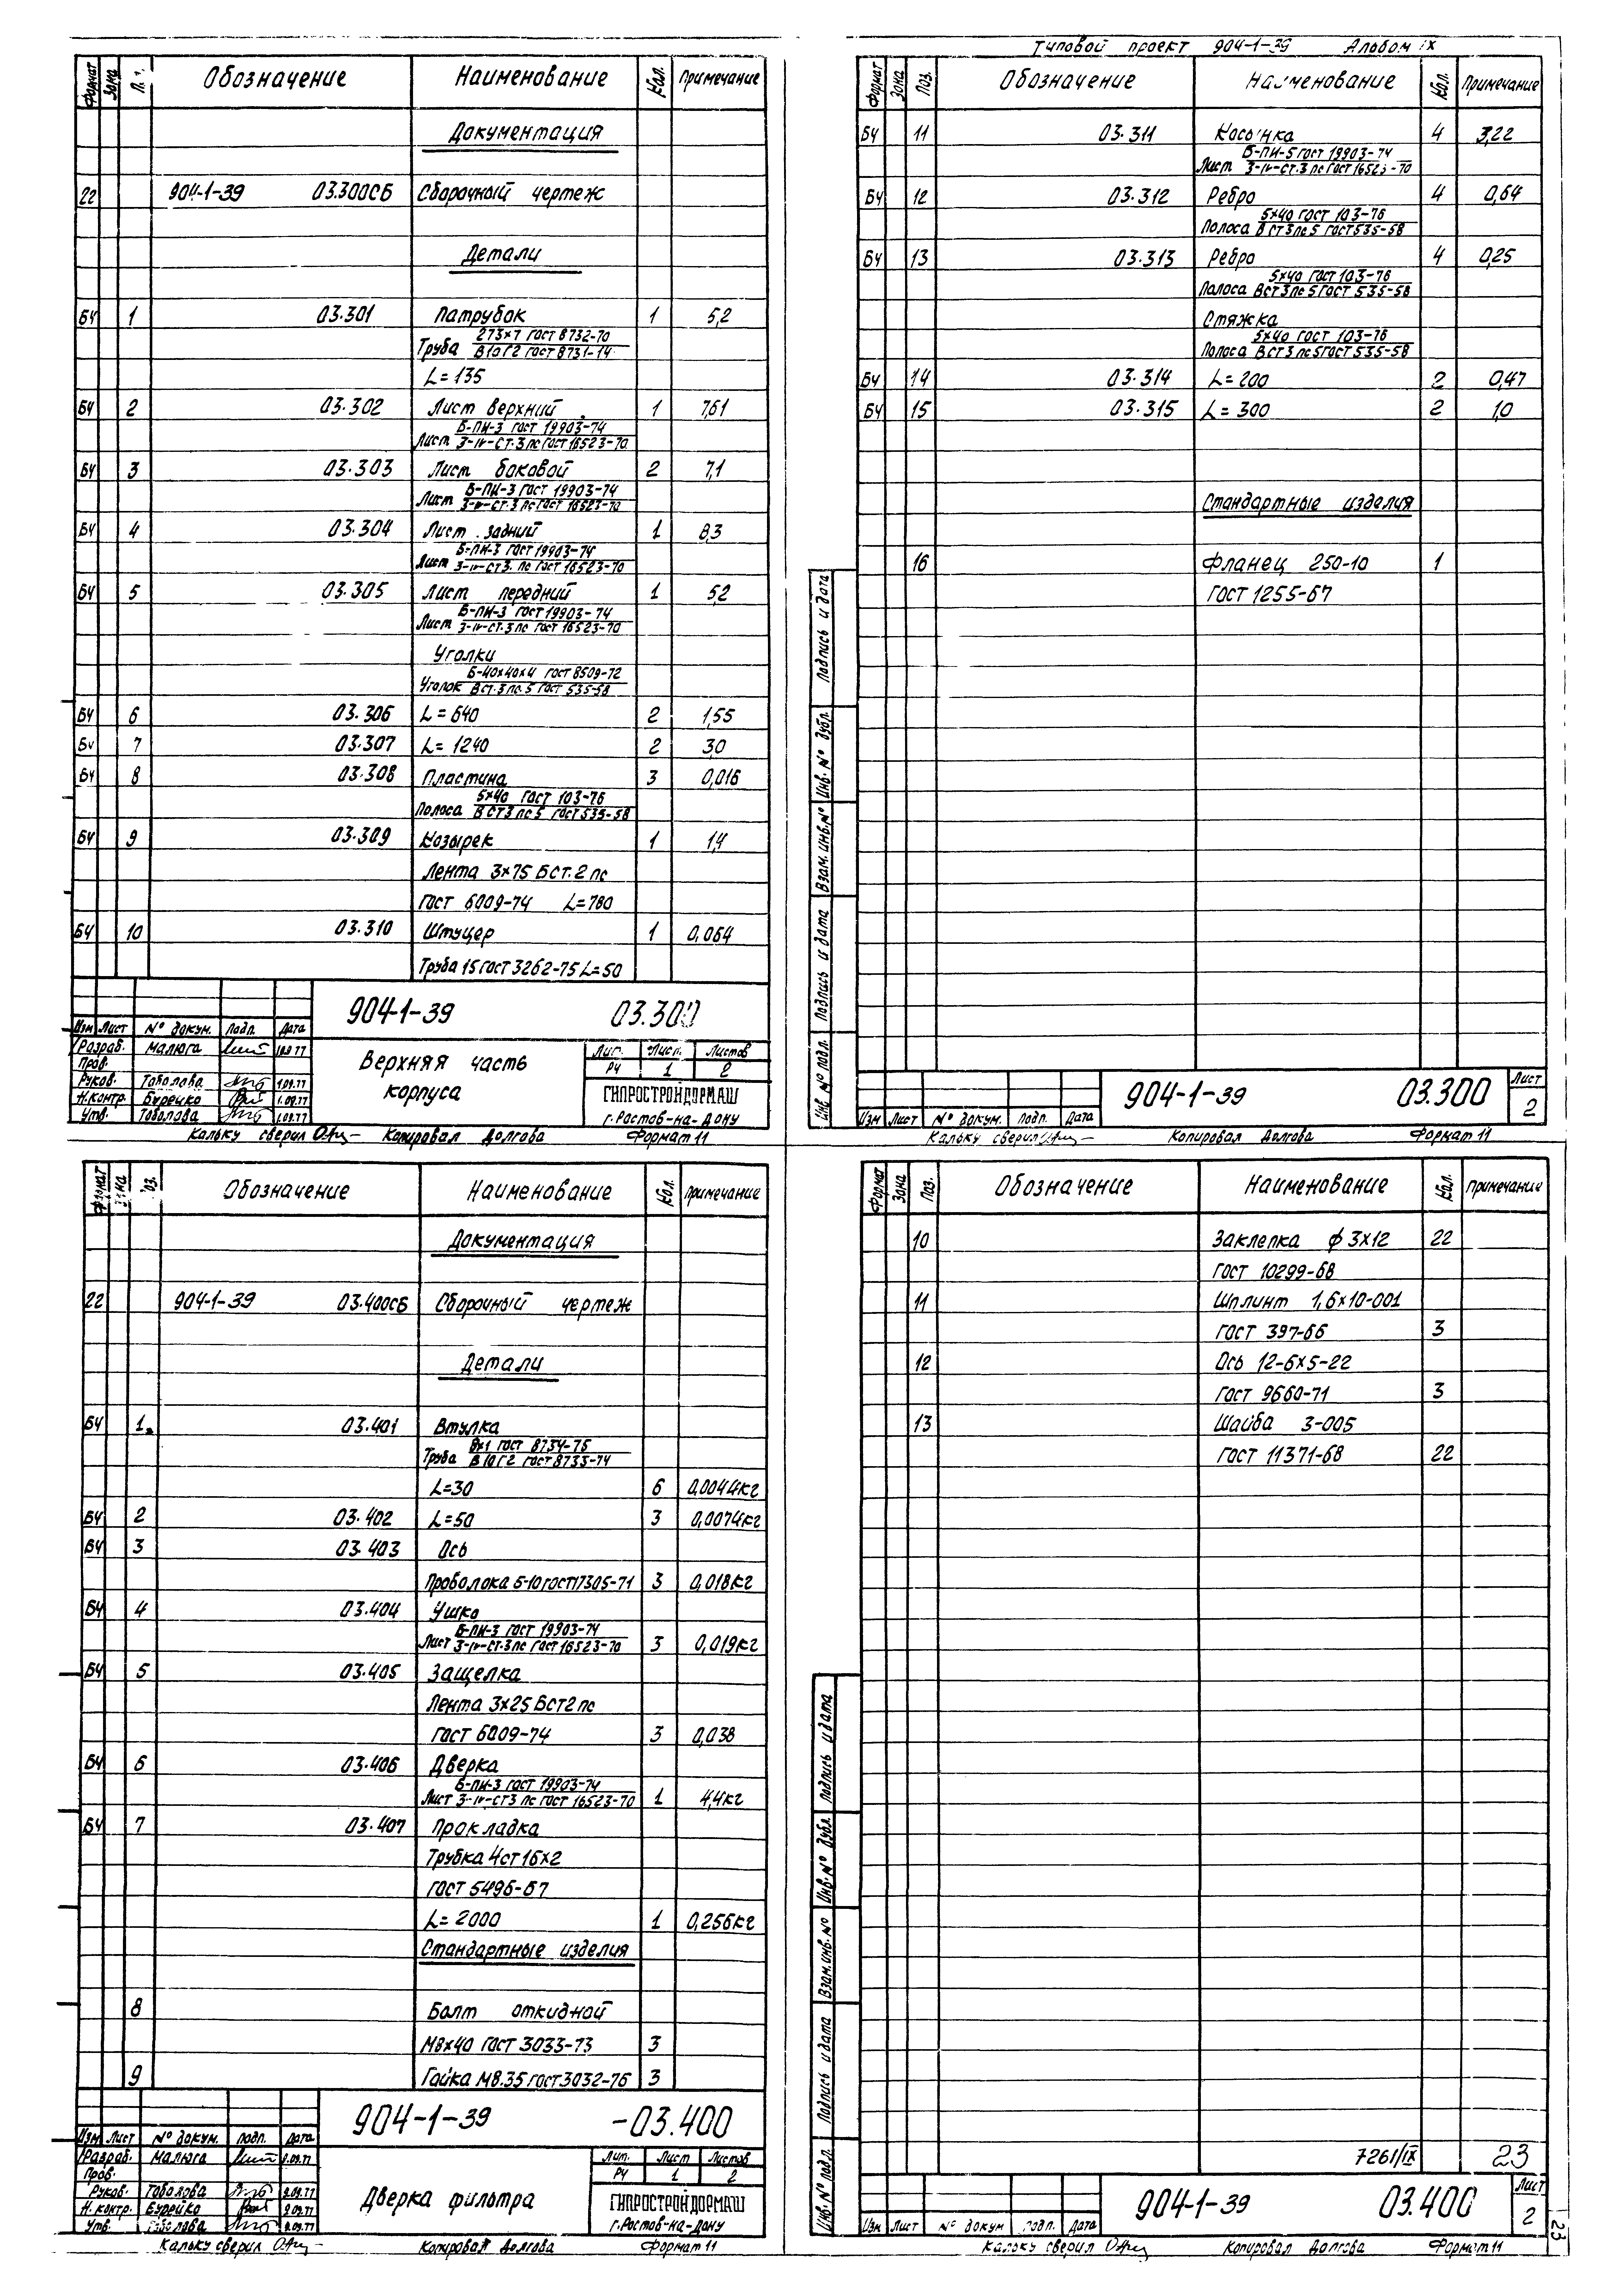 Типовой проект 904-1-39 Альбом IX
Формат Зона Обозначение Наименование Кол. Примечание
Документация
22 904-1-39 03.300СБ Сборочный чертеж
Детали
БЧ 1 03.301 Патрубок 1 5,2
Труба 273×7 ГОСТ 8732-70
В10Г2 ГОСТ 8731-74
L=135
БЧ 2 03.302 Лист верхний 1 7,61
Лист Б-ПН-3 ГОСТ 19903-74
3-IV-Ст.3 пс ГОСТ 16523-70
БЧ 3 03.303 Лист боковой 2 7,1
Лист Б-ПН-3 ГОСТ 19903-74
3-IV-Ст.3 пс ГОСТ 16523-70
БЧ 4 03.304 Лист задний 1 8,3
Лист Б-ПН-3 ГОСТ 19903-74
3-IV-Ст3. пс ГОСТ 16523-70
БЧ 5 03.305 Лист передний 1 5,2
Лист Б-ПН-3 ГОСТ 19903-74
3-IV-Ст.3 пс ГОСТ 16523-70
Уголки
Уголок Б-40×40×4 ГОСТ 8509-72
Вст.3 пс.5 ГОСТ 535-58
БЧ 6 03.306 L=640 2 1,55
БЧ 7 03.307 L=1240 2 3,0
БЧ 8 03.308 Пластина 3 0,016
Полоса 5×40 ГОСТ 103-76
В Ст3 пс 5 ГОСТ 535-58
БЧ 9 03.309 Козырек 1 1,4
Лента 3×75 Бст.2 пс
ГОСТ 6009-74 L=780
БЧ 10 03.310 Штуцер 1 0,064
Труба 15 ГОСТ 3262-75 L=50
904-1-39 03.300
Изм Лист № докум. Подп. Дата
Разраб. Малюга
Пров.
Руков. Тоболова 1.09.77
Н.контр. Бурейко 1.09.77
Утв. Тоболова 1.09.77
Верхняя часть
корпуса
Лит. Лист. Листов
РЧ 1 2
ГИПРОСТРОЙДОРМАШ
г. Ростов-на-Дону
Кальку сверил Копировал Долгова Формат 11
Формат Зона Поз. Обозначение Наименование Кол. Примечание
БЧ 11 03.311 Косынка 4 3,22
Лист Б-ПН-5 ГОСТ 19903-74
3-IV-Ст.3 пс ГОСТ 16523-70
БЧ 12 03.312 Ребро 4 0,64
Полоса 5×40 ГОСТ 103-76
В Ст3 пс 5 ГОСТ 535-58
БЧ 13 03.313 Ребро 4 0,25
Полоса 5×40 ГОСТ 103-76
Вст3 пс 5 ГОСТ 535-58
Стяжка
Полоса 5×40 ГОСТ 103-76
Вст3 пс 5 ГОСТ 535-58
БЧ 14 03.314 L=200 2 0,47
БЧ 15 03.315 L=300 2 1,0
Стандартные изделия
16 Фланец 250-10 1
ГОСТ 1255-67
Инв № подл. Подпись и дата Взам. инв.№ Инв. № дубл. Подпись и дата
904-1-39 03.300 Лист
2
Изм Лист № докум. Подп. Дата
Кальку сверил Копировал Долгова Формат 11
Формат Зона Обозначение Наименование Кол. Примечание
Документация
22 904-1-39 03.400СБ Сборочный чертеж
Детали
БЧ 1. 03.401 Втулка
Труба 8×1 ГОСТ 8734-75
В10Г2 ГОСТ 8733-74
L=30 6 0,0044кг
БЧ 2 03.402 L=50 3 0,0074кг
БЧ 3 03.403 Ось
Проволока 5-10 ГОСТ 17305-71 3 0,018кг
БЧ 4 03.404 Ушко
Лист Б-ПН-3 ГОСТ 19903-74
3-IV-Ст.3 пс ГОСТ 16523-70 3 0,019кг
БЧ 5 03.405 Защелка
Лента 3×25 Бст2 пс
ГОСТ 6009-74 3 0,038
БЧ 6 03.406 Дверка
Лист Б-ПН-3 ГОСТ 19903-74
3-IV-Ст3 пс ГОСТ 16523-70 1 4,4кг
БЧ 7 03.407 Прокладка
Трубка 4ст 16×2
ГОСТ 5496-67
L=2000 1 0,256кг
Стандартные изделия
8 Болт откидной
М8×40 ГОСТ 3033-73 3
9 Гайка М8.35 ГОСТ 3032-76 3
904-1-39 -03.400
Изм Лист № докум. Подп. Дата
Разраб. Малюга
Пров.
Руков. Тоболова
Н. контр. Бурейко
Утв. Тоболова
Дверка фильтра
Лит. Лист Листов
РЧ 1 2
ГИПРОСТРОЙДОРМАШ
г. Ростов-на-Дону
Кальку сверил Копировал Долгова Формат 11
Формат Зона Поз. Обозначение Наименование Кол. Примечание
10 Заклепка ф 3×12 22
ГОСТ 10299-68
11 Шплинт 1,6×10-001
ГОСТ 397-66 3
12 Ось 12-6×5-22
ГОСТ 9660-71 3
13 Шайба 3-005
ГОСТ 11371-68 22
Инв. № подл. Подпись и дата Взам. инв. № Инв. № дубл. Подпись и дата
7261/IX 23
904-1-39 03.400 Лист
2
Изм Лист № докум Подп. Дата
Кальку сверил Копировал Долгова Формат 11
23